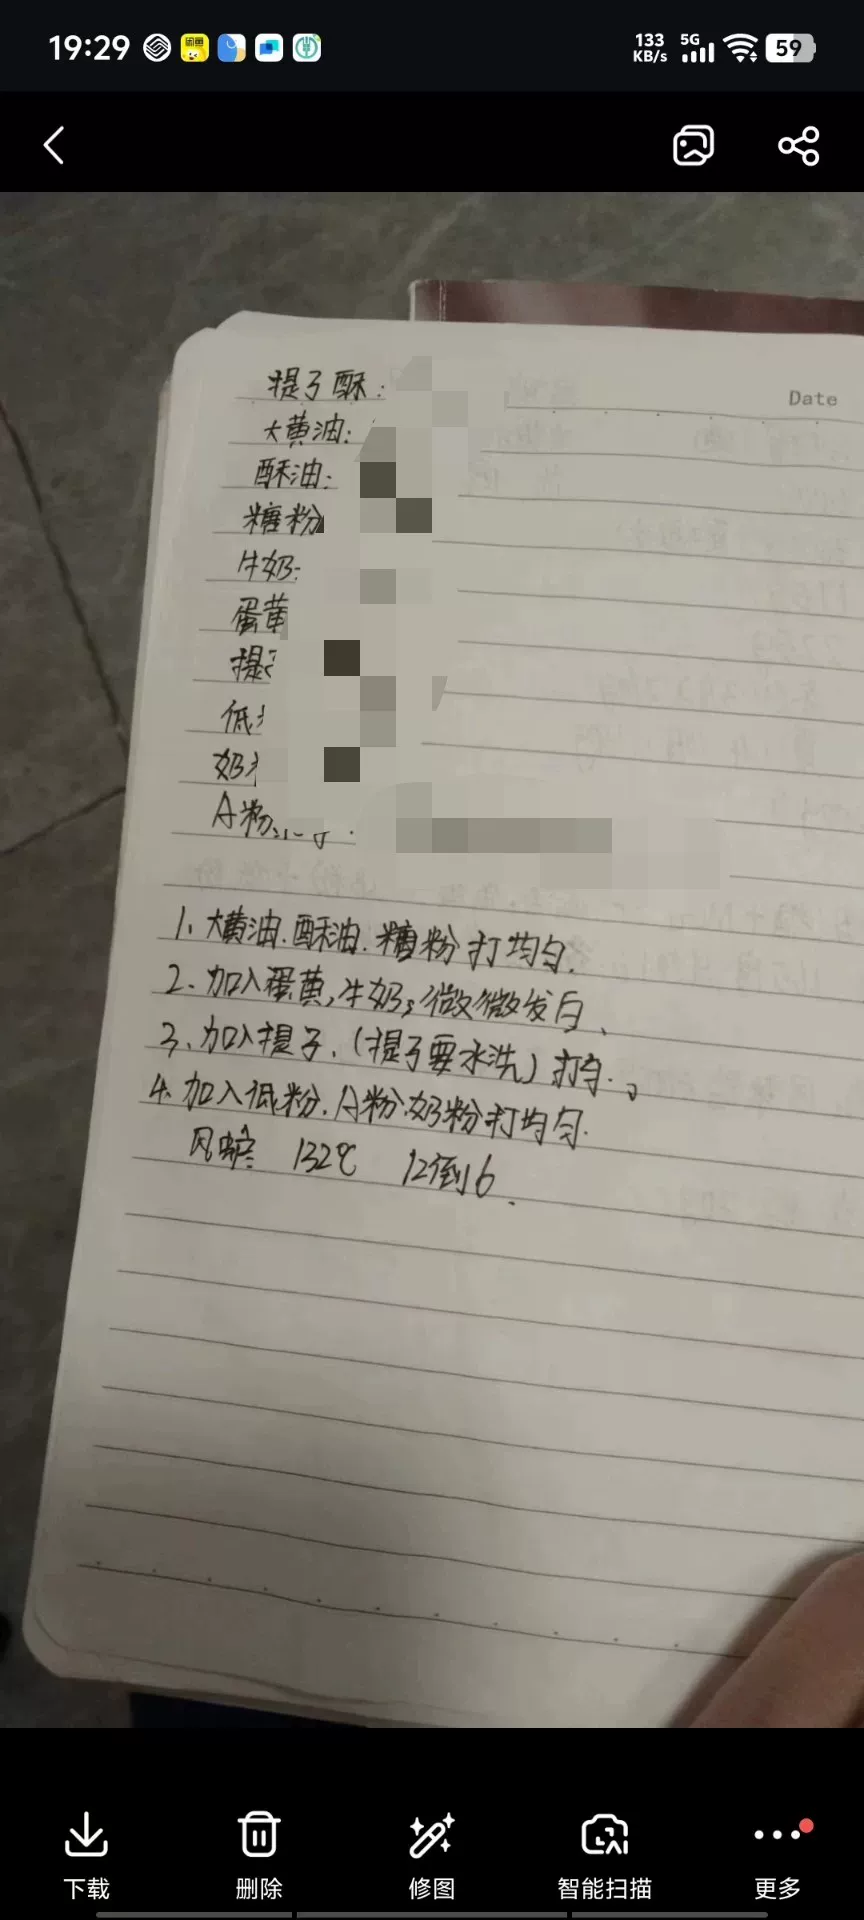 19:29
133 KB/s 5G 59
Date
提子酥:
大黄油:
酥油:
糖粉
牛奶:
蛋黄
提
低
奶
A粉
1. 大黄油.酥油.糖粉打均匀.
2. 加入蛋黄,牛奶,微微发白、
3. 加入提子.(提子要水洗)打匀.。
4. 加入低粉.A粉.奶粉打均匀.
132℃ 12倒6.
下载
删除
修图
智能扫描
更多